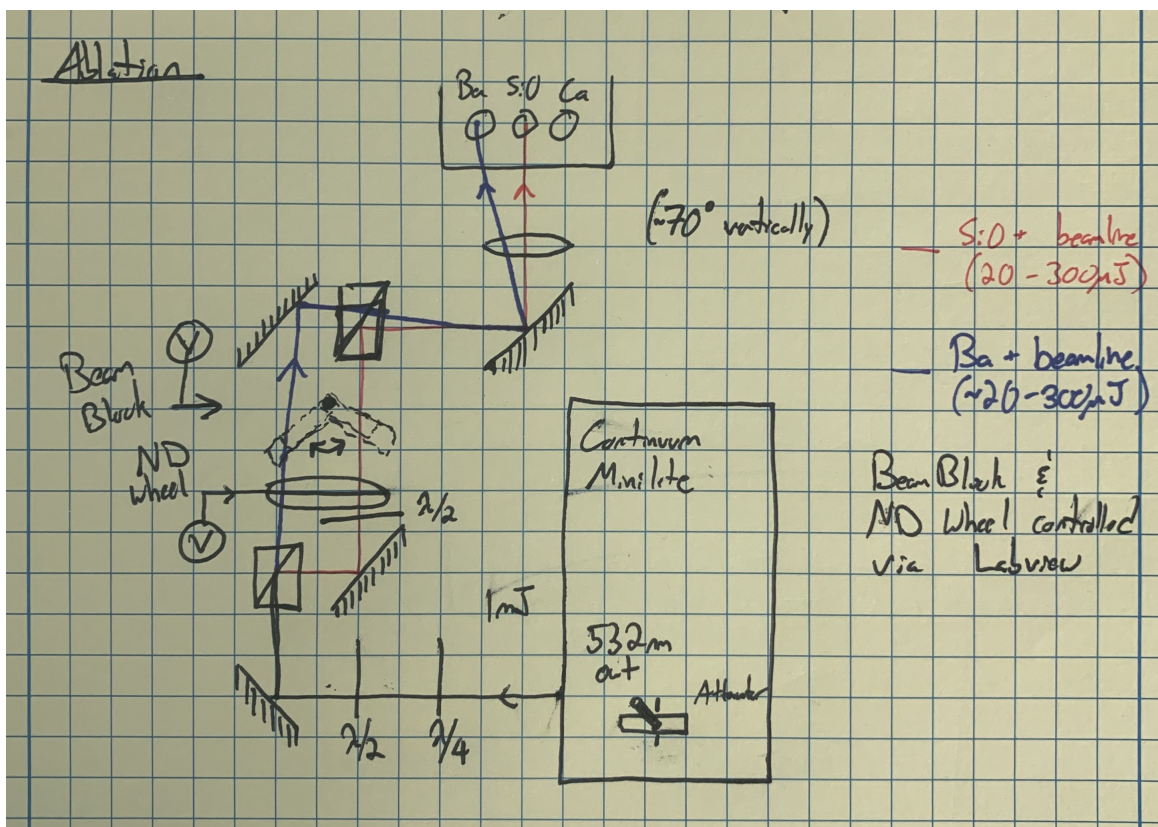 Ablation
Ba SiO Ca
(~70° vertically)
SiO+ beamline
(20-300µJ)
Ba+ beamline
(~20-300µJ)
V
Beam
Block
ND
Wheel
V
λ/2
Continuum
Minilite
BeamBlock &
ND Wheel controlled
via Labview
1mJ
532nm
out
Attenuator
λ/2 λ/4